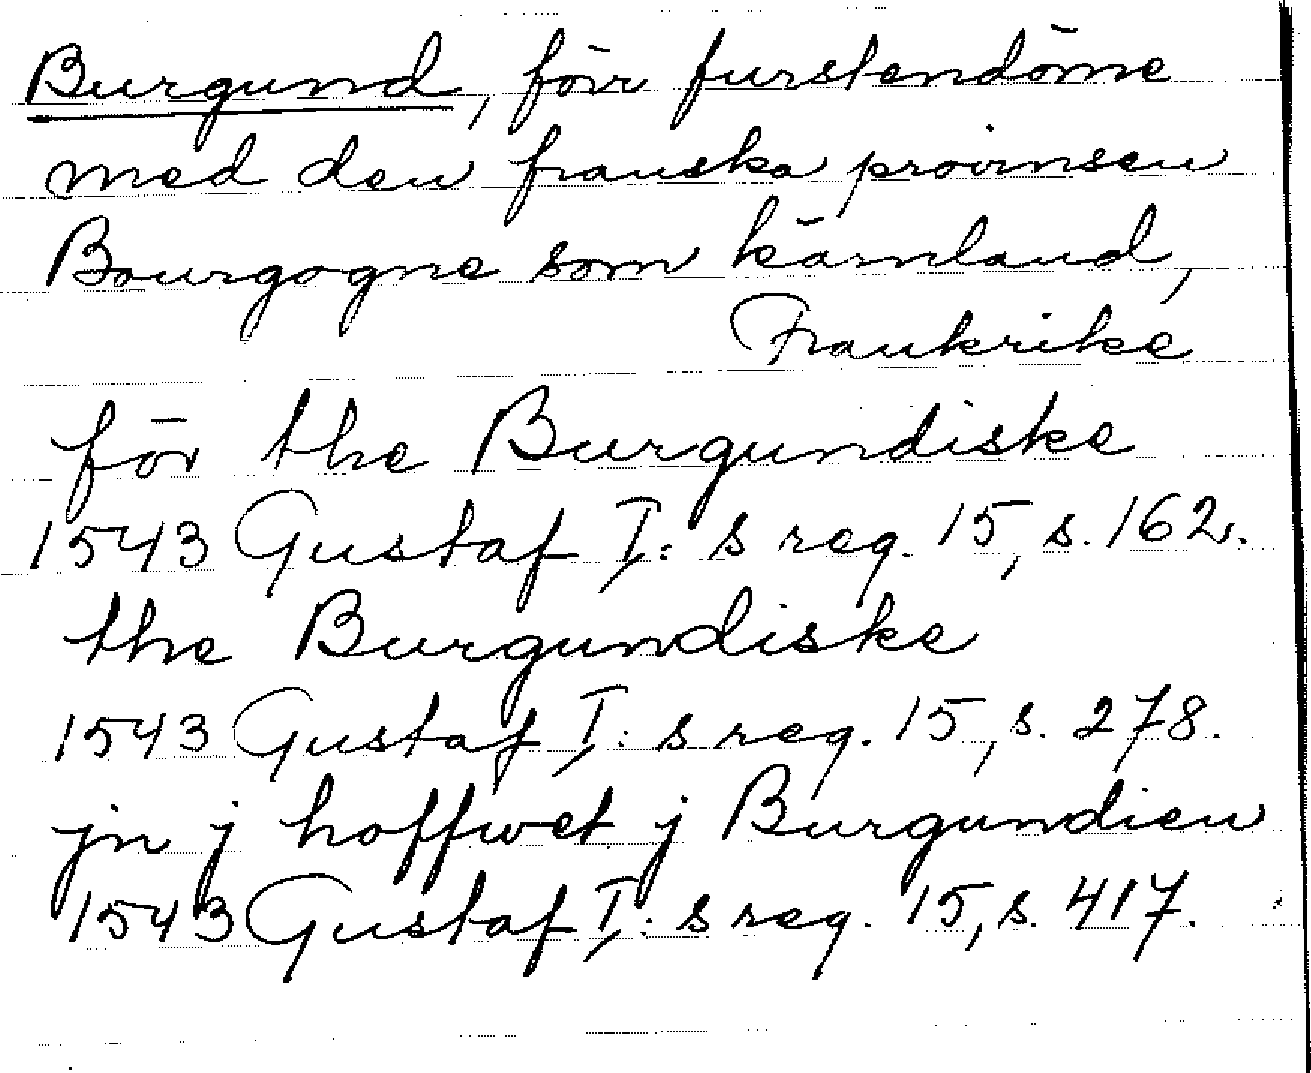 Burgund, förr furstendöme
med den franska provinsen
Bourgogne som kärnland,
Frankrike
för the Burgundiske
1543 Gustaf I: s reg. 15, s. 162.
the Burgundiske
1543 Gustaf I: s reg. 15, s. 278.
jn j hoffwet j Burgundien
1543 Gustaf I: s reg. 15, s. 417.